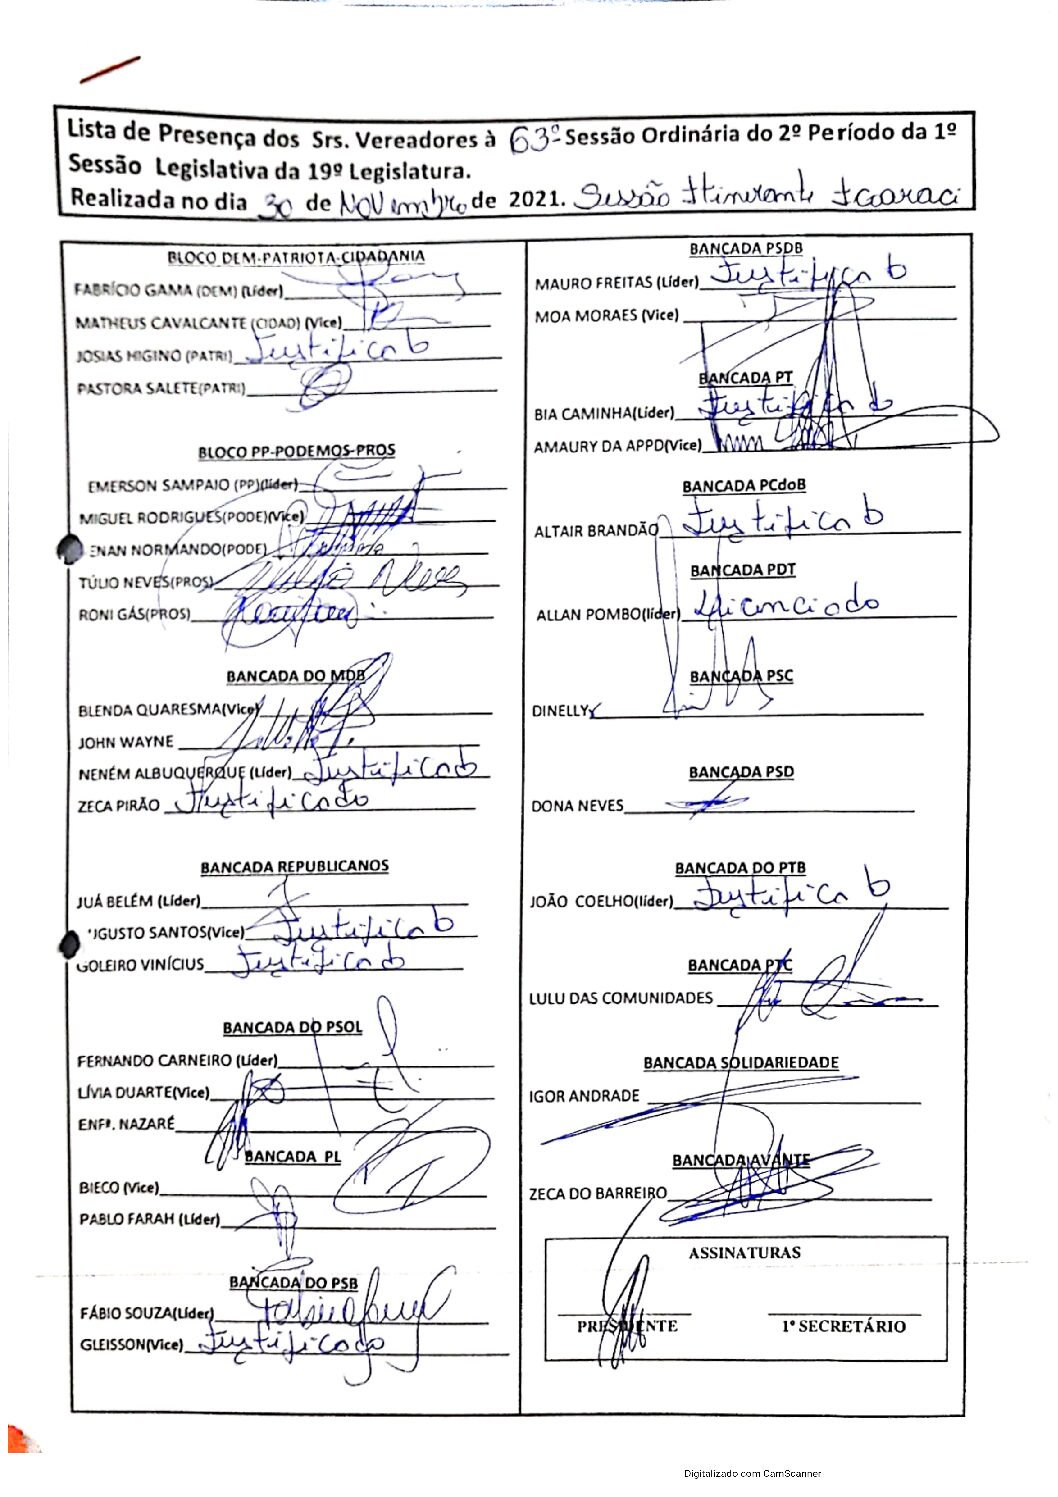 Lista de Presença dos Srs. Vereadores à 63º Sessão Ordinária do 2º Período da 1º
Sessão Legislativa da 19º Legislatura.
Realizada no dia 30 de Novembro de 2021. Sessão Itinerante Icoaraci
BLOCO DEM-PATRIOTA-CIDADANIA
FABRÍCIO GAMA (DEM) (Líder)
MATHEUS CAVALCANTE (CIDAD) (Vice)
JOSIAS HIGINO (PATRI) Justificado
PASTORA SALETE(PATRI)
BLOCO PP-PODEMOS-PROS
EMERSON SAMPAIO (PP)(líder)
MIGUEL RODRIGUES(PODE)(Vice)
ENAN NORMANDO(PODE)
TÚLIO NEVES(PROS) Túlio Neves
RONI GÁS(PROS)
BANCADA DO MDB
BLENDA QUARESMA(Vice)
JOHN WAYNE
NENÉM ALBUQUERQUE (Líder) Justificado
ZECA PIRÃO Justificado
BANCADA REPUBLICANOS
JUÁ BELÉM (Líder)
UGUSTO SANTOS(Vice) Justificado
GOLEIRO VINÍCIUS Justificado
BANCADA DO PSOL
FERNANDO CARNEIRO (Líder)
LÍVIA DUARTE(Vice)
ENFª. NAZARÉ
BANCADA PL
BIECO (Vice)
PABLO FARAH (Líder)
BANCADA DO PSB
FÁBIO SOUZA(Líder)
GLEISSON(Vice) Justificado
BANCADA PSDB
MAURO FREITAS (Líder) Justificado
MOA MORAES (Vice)
BANCADA PT
BIA CAMINHA(Líder) Justificado
AMAURY DA APPD(Vice)
BANCADA PCdoB
ALTAIR BRANDÃO Justificado
BANCADA PDT
ALLAN POMBO(líder) Licenciado
BANCADA PSC
DINELLY
BANCADA PSD
DONA NEVES
BANCADA DO PTB
JOÃO COELHO(líder) Justificado
BANCADA PTC
LULU DAS COMUNIDADES
BANCADA SOLIDARIEDADE
IGOR ANDRADE
BANCADA AVANTE
ZECA DO BARREIRO
ASSINATURAS
PRESIDENTE 1º SECRETÁRIO
Digitalizado com CamScanner